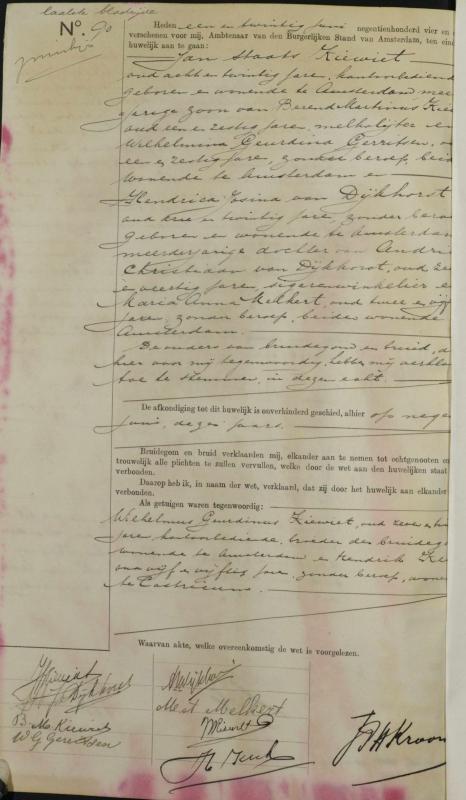 laatste bladzijde
N°. 90
Heden een en twintig Juni negentienhonderd vier en
verschenen voor mij, Ambtenaar van den Burgerlijken Stand van Amsterdam, ten ein
huwelijk aan te gaan:
Jan Staats Kiewiet
oud acht en twintig jare, kantoorbediend
geboren en wonende te Amsterdam meer
jarige zoon van Berend Martinus Kie
oud een en zestig jare, melkslijter en
Wilhelmina Geurdina Gerritsen, o
een en zestig jare, zonder beroep, beid
wonende te Amsterdam en
Hendrica Josina van Dijkhorst
oud drie en twintig jare, zonder beroe
geboren en wonende te Amsterdam
meerderjarige dochter van Andri
Christiaan van Dijkhorst, oud
en veertig jare, sigarenwinkelier e
Maria Anna Melkert, oud twee en vijf
jare, zonder beroep, beiden wonende
Amsterdam.
De ouders van bruidegom en bruid, a
hier voor mij tegenwoordig, hebben mij verkla
toe te stemmen, in dezen echt.
De afkondiging tot dit huwelijk is onverhinderd geschied, alhier op nege
Juni, dezes jaars.
Bruidegom en bruid verklaarden mij, elkander aan te nemen tot echtgenooten en
trouwelijk alle plichten te zullen vervullen, welke door de wet aan den huwelijken staat
verbonden.
Daarop heb ik, in naam der wet, verklaard, dat zij door het huwelijk aan elkander
verbonden.
Als getuigen waren tegenwoordig:
Wilhelmus Geurdinus Kiewiet, oud zeven en
jare, kantoorbediende, broeder des bruidego
wonende te Amsterdam en Hendrik
oud vijf en vijftig jare, zonder beroep, wone
te Castricum.
Waarvan akte, welke overeenkomstig de wet is voorgelezen.
JSKiewiet
HJv Dijkhorst
B.M. Kiewiet
W G Gerritsen
M A Melkert
Kiewiet
Kroon